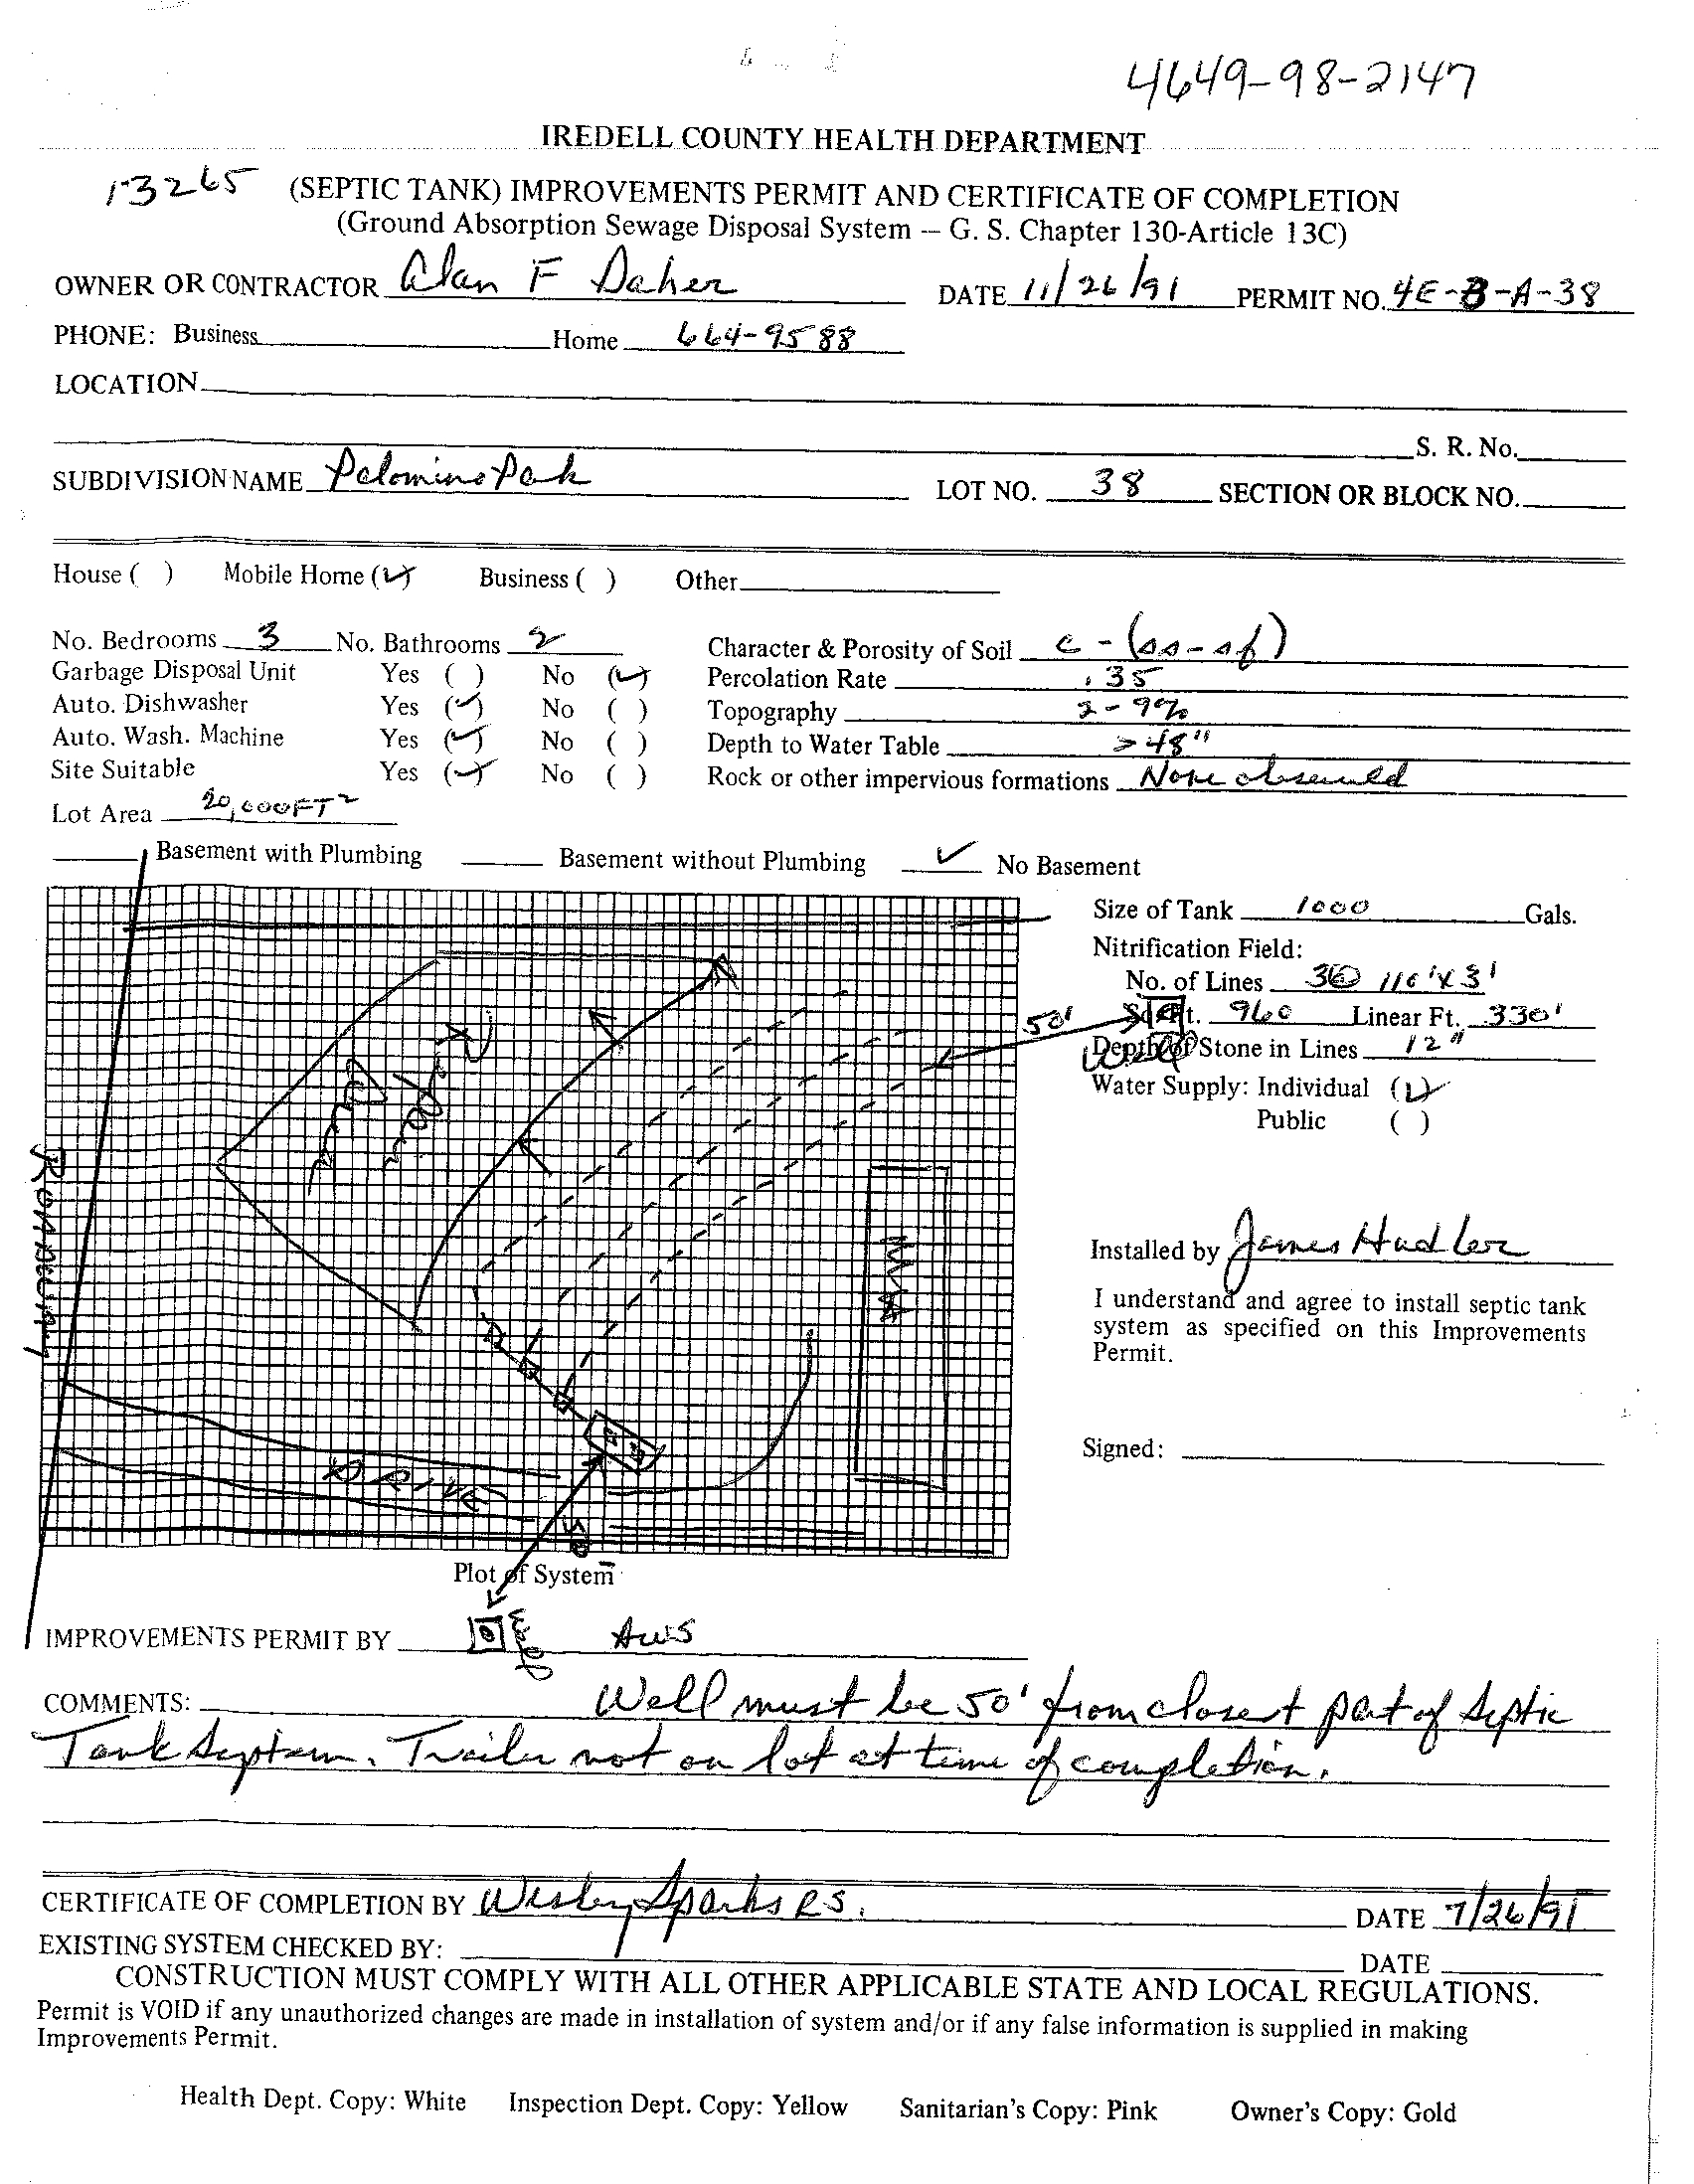 4649-98-2147
IREDELL COUNTY HEALTH DEPARTMENT
13265 (SEPTIC TANK) IMPROVEMENTS PERMIT AND CERTIFICATE OF COMPLETION
(Ground Absorption Sewage Disposal System – G. S. Chapter 130-Article 13C)
OWNER OR CONTRACTOR Alan F Daher DATE 11/26/91 PERMIT NO. 4E-B-A-38
PHONE: Business Home 664-9588
LOCATION
S. R. No.
SUBDIVISION NAME Palomino Park LOT NO. 38 SECTION OR BLOCK NO.
House ( ) Mobile Home (✓) Business ( ) Other
No. Bedrooms 3 No. Bathrooms 2 Character & Porosity of Soil c - (ss-sf)
Garbage Disposal Unit Yes ( ) No (✓) Percolation Rate .35
Auto. Dishwasher Yes (✓) No ( ) Topography 2-9%
Auto. Wash. Machine Yes (✓) No ( ) Depth to Water Table >48"
Site Suitable Yes (✓) No ( ) Rock or other impervious formations None observed
Lot Area 20,000FT²
Basement with Plumbing Basement without Plumbing ✓ No Basement
Size of Tank 1000 Gals.
Nitrification Field:
No. of Lines 3 110'X3'
50' Sq. Ft. 960 Linear Ft. 330'
Well Depth of Stone in Lines 12"
Water Supply: Individual (✓)
Public ( )
ROADWAY
DRIVE
50
Installed by James Hadler
I understand and agree to install septic tank
system as specified on this Improvements
Permit.
Signed:
Plot of System
IMPROVEMENTS PERMIT BY Well AWS
COMMENTS: Well must be 50' from closest part of Septic
Tank System. Trailer not on lot at time of completion.
CERTIFICATE OF COMPLETION BY Wesley Sparks R.S. DATE 7/26/91
EXISTING SYSTEM CHECKED BY: DATE
CONSTRUCTION MUST COMPLY WITH ALL OTHER APPLICABLE STATE AND LOCAL REGULATIONS.
Permit is VOID if any unauthorized changes are made in installation of system and/or if any false information is supplied in making
Improvements Permit.
Health Dept. Copy: White Inspection Dept. Copy: Yellow Sanitarian's Copy: Pink Owner's Copy: Gold